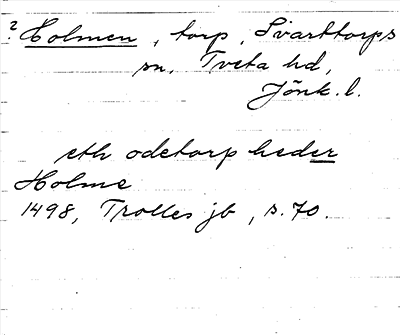 ? Holmen, torp, Svarttorps
sn. Tveta hd,
Jönk. l.
eth ödetorp heder
Holme
1498, Trolles jb, s. 70.